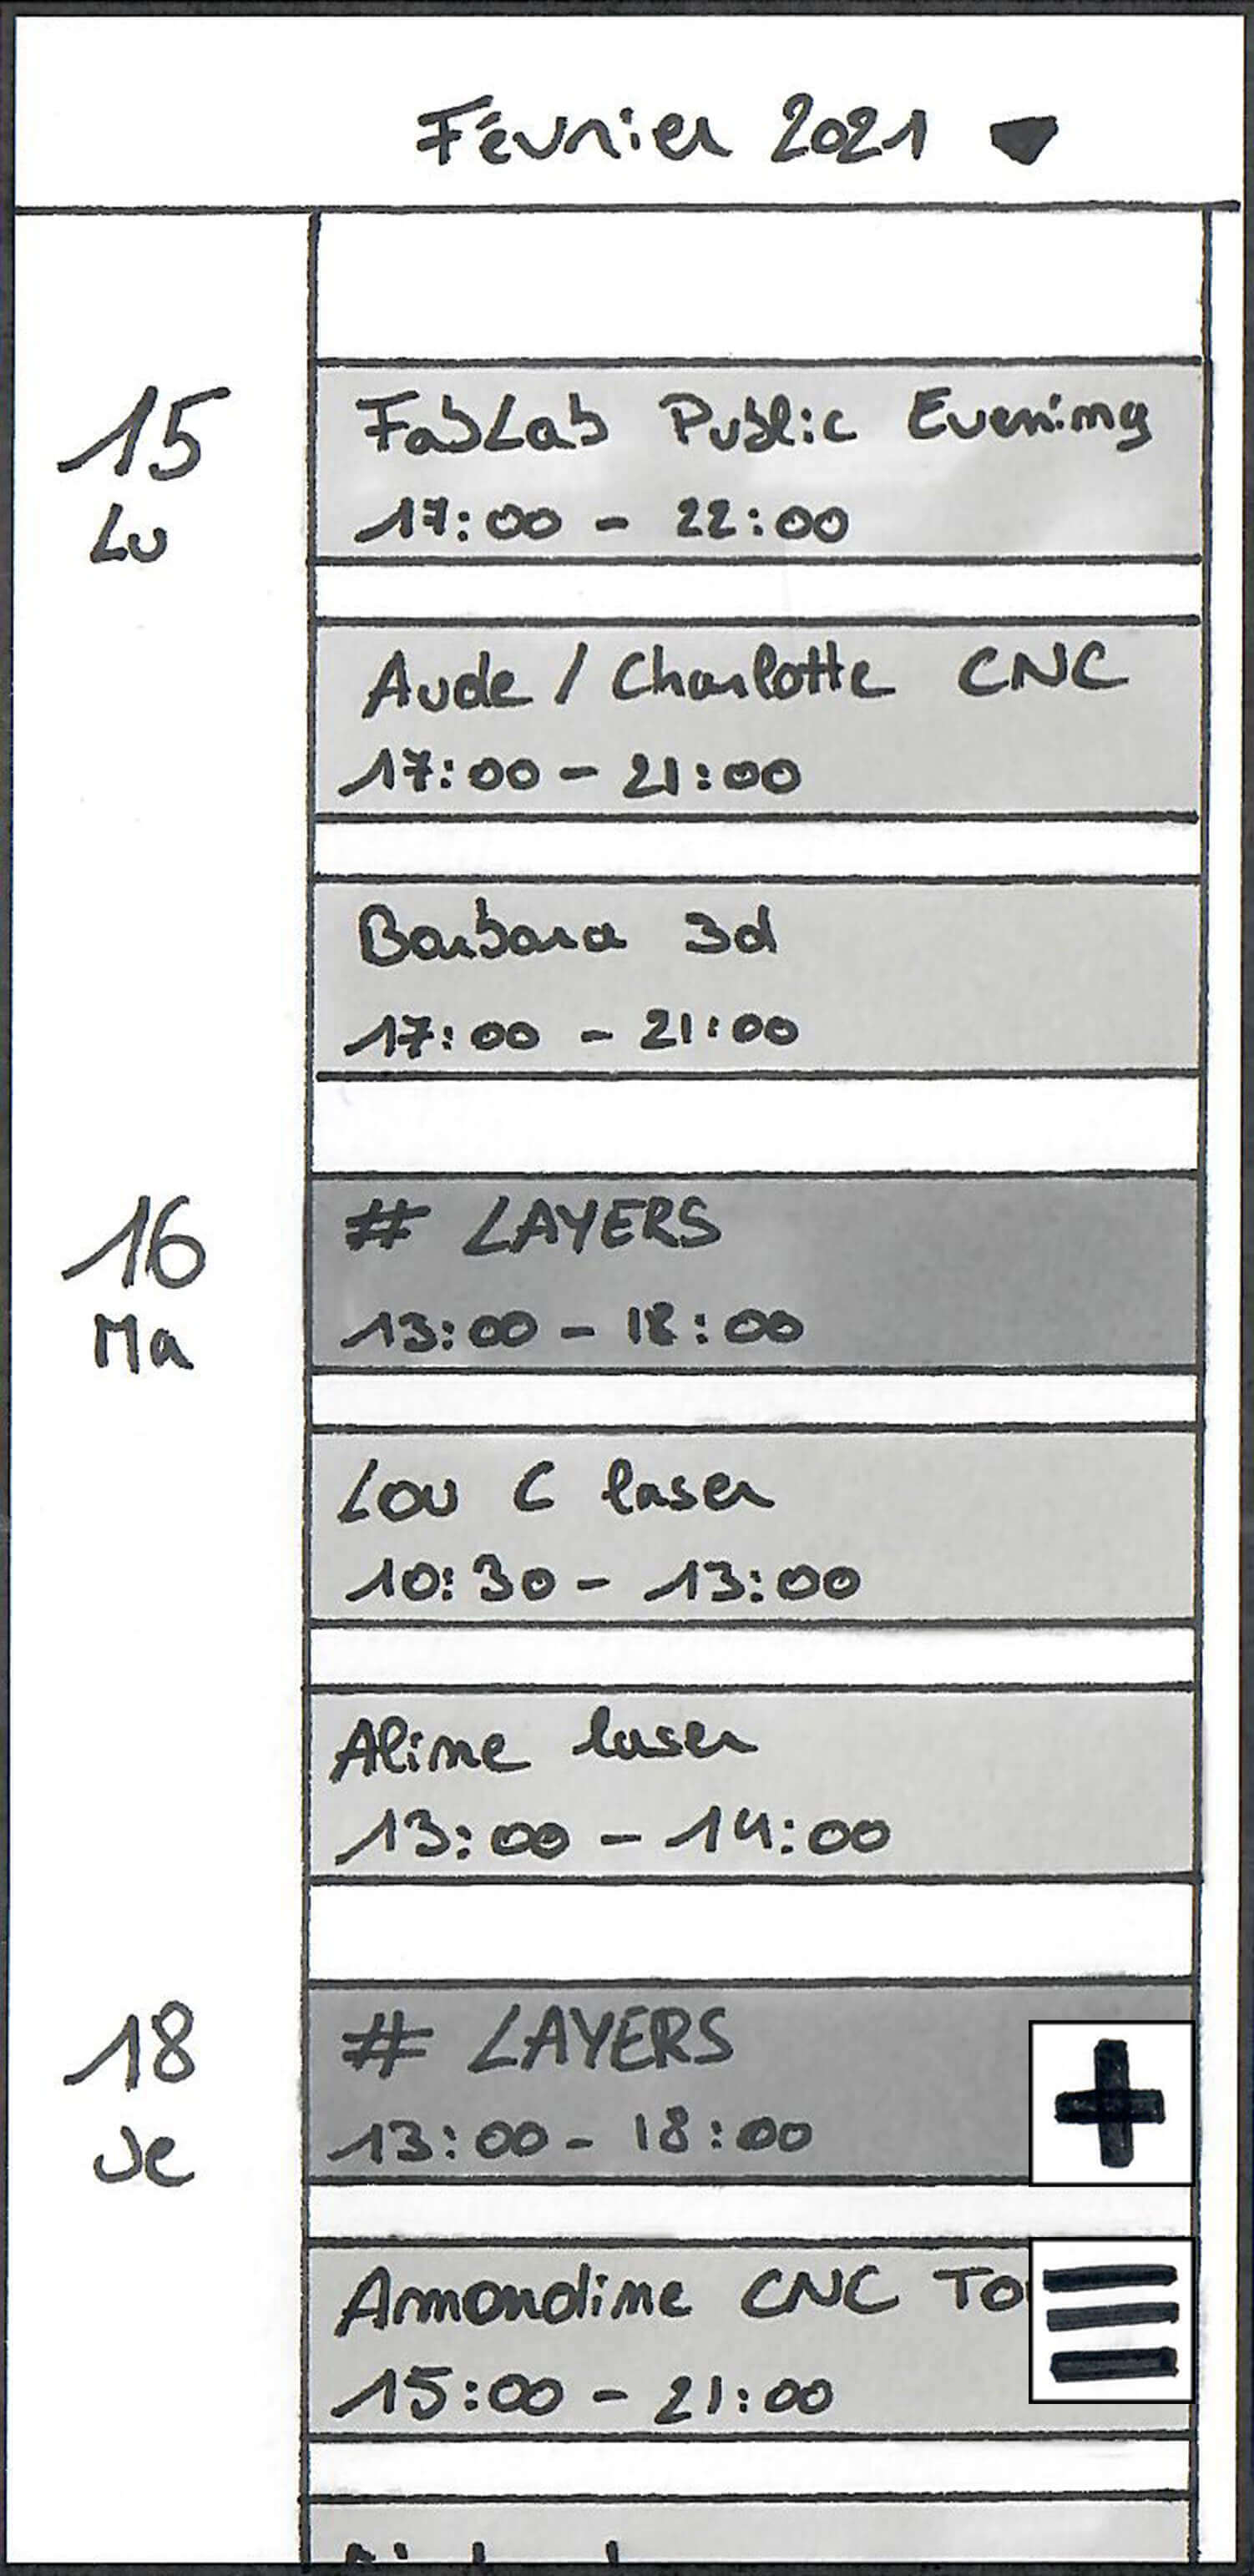 Février 2021
15
Lu
FabLab Public Evening
17:00 - 22:00
Aude / Charlotte CNC
17:00 - 21:00
Barbara 3d
17:00 - 21:00
16
Ma
# LAYERS
13:00 - 18:00
Lou C laser
10:30 - 13:00
Aline laser
13:00 - 14:00
18
Je
# LAYERS
13:00 - 18:00
Amandine CNC To
15:00 - 21:00